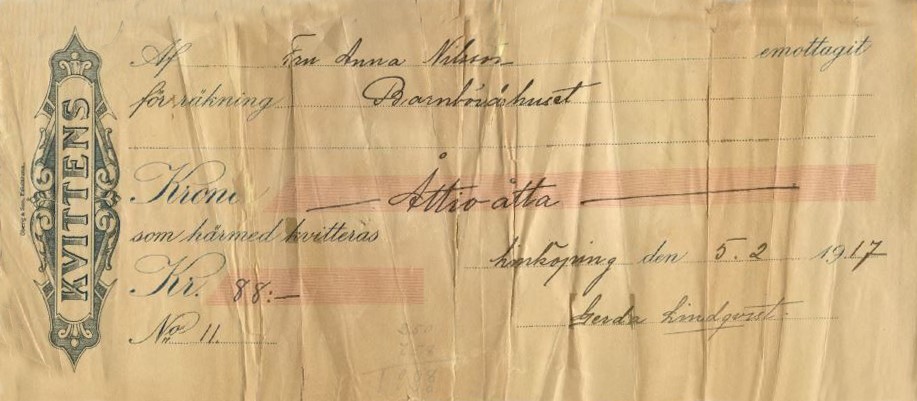 KVITTENS
Af Fru Anna Nilsson emottagit
för räkning Barnbördshuset
Kronor Åttio åtta
som härmed kvitteras
Linköping den 5.2 1917
Kr. 88:-
Gerda Lindqvist
No 11.